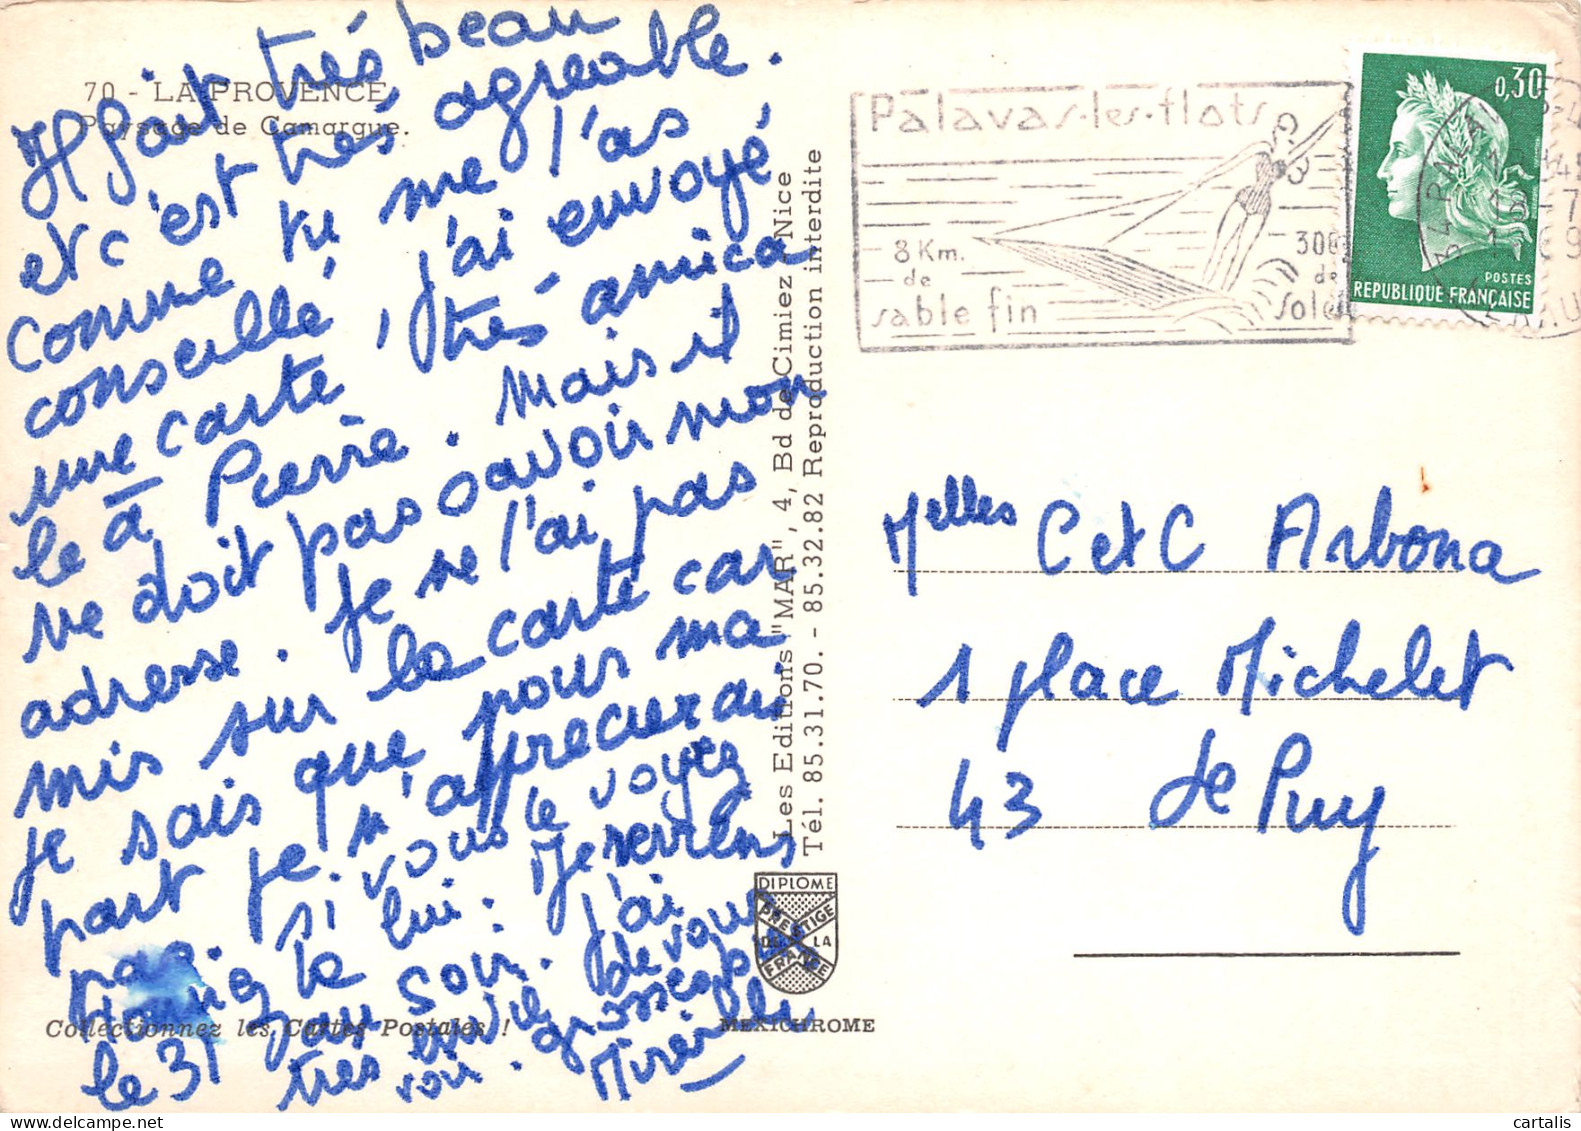 70 - LA PROVENCE
Paysage de Camargue.
Il fait très beau
et c'est très agréable.
comme tu me l'as
conseillé, j'ai envoyé
une carte, très amica
le à Pierre. Mais il
ne doit pas savoir mon
adresse. Je ne l'ai pas
mis sur la carte car
je sais que pour ma
part je n'apprécierai
pas. si vous le voyez
la lui. Je reviens
le 31 au soir. J'ai
très envie de vous
voir. grosses
Mireille
Collectionnez les Cartes Postales !
Les Editions "MAR", 4, Bd de Cimiez - Nice
Tél. 85.31.70. - 85.32.82 Reproduction interdite
DIPLOME
PRESTIGE
DE LA
FRANCE
MEXICHROME
Palavas-les-flots
8 Km.
de
sable fin
300
de
Soleil
0,30
POSTES
REPUBLIQUE FRANÇAISE
Melles C et C Arbona
1 place Michelet
43 le Puy
cartalis